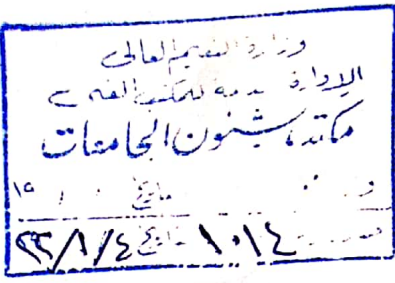 وزارة التعليم العالى
الإدارة العامة للمكتب الفنى
مكتب شئون الجامعات
تاريخ / / ١٩
١٠١٤ تاريخ ٤/١/٢٢